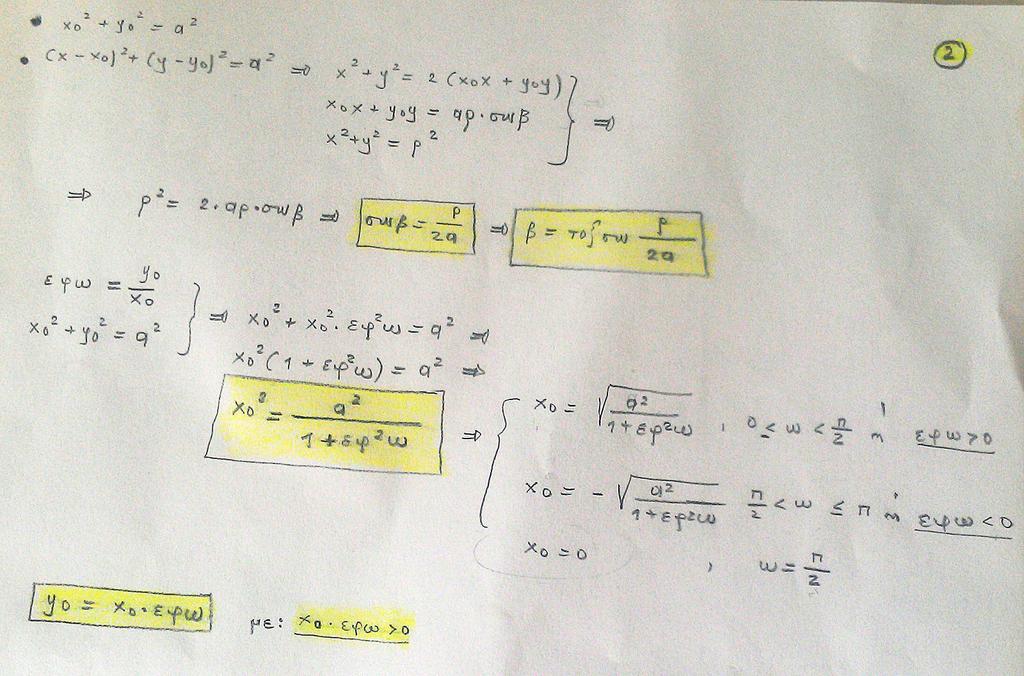 • x₀² + y₀² = a²
②
• (x - x₀)² + (y - y₀)² = a² ⇒ x² + y² = 2 (x₀x + y₀y)
x₀x + y₀y = aρ·συνβ } ⇒
x² + y² = ρ²
⇒ ρ² = 2·aρ·συνβ ⇒ συνβ = ρ/2a ⇒ β = τοξσυν ρ/2a
εφω = y₀/x₀
x₀² + y₀² = a² } ⇒ x₀² + x₀²·εφ²ω = a² ⇒
x₀²(1 + εφ²ω) = a² ⇒
x₀² = a²/(1 + εφ²ω) ⇒ { x₀ = √(a²/(1+εφ²ω)) , 0 ≤ ω < π/2 ή εφω>0
x₀ = - √(a²/(1+εφ²ω)) π/2 < ω ≤ π ή εφω<0
x₀ = 0 , ω = π/2
y₀ = x₀·εφω με: x₀·εφω>0